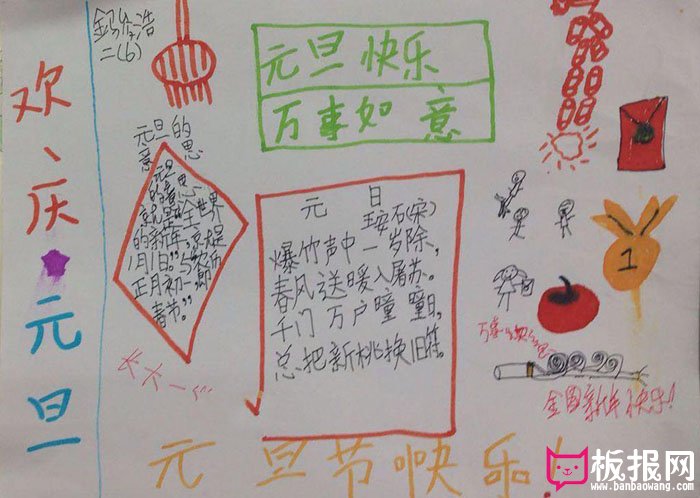 欢庆元旦
二(6)
元旦快乐
万事如意
元旦的
意思
世界
的新年
1月1日。
正月初一
春节。”
元 日
王安石(宋)
爆竹声中一岁除,
春风送暖入屠苏。
千门万户曈曈日,
总把新桃换旧
1
新年快乐!
元旦节快乐!
板报网
www.banbaowang.com